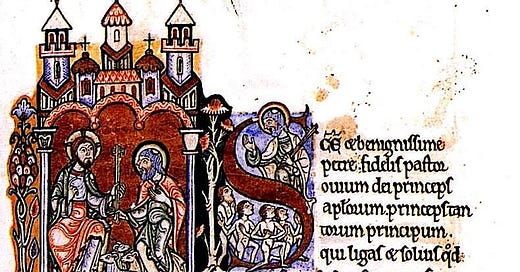 SC̄E & benignissime
petre. fidelis pastor
ouium dei princeps
aplorum. princeps tan
torum principum.
qui ligas & soluis qd̄